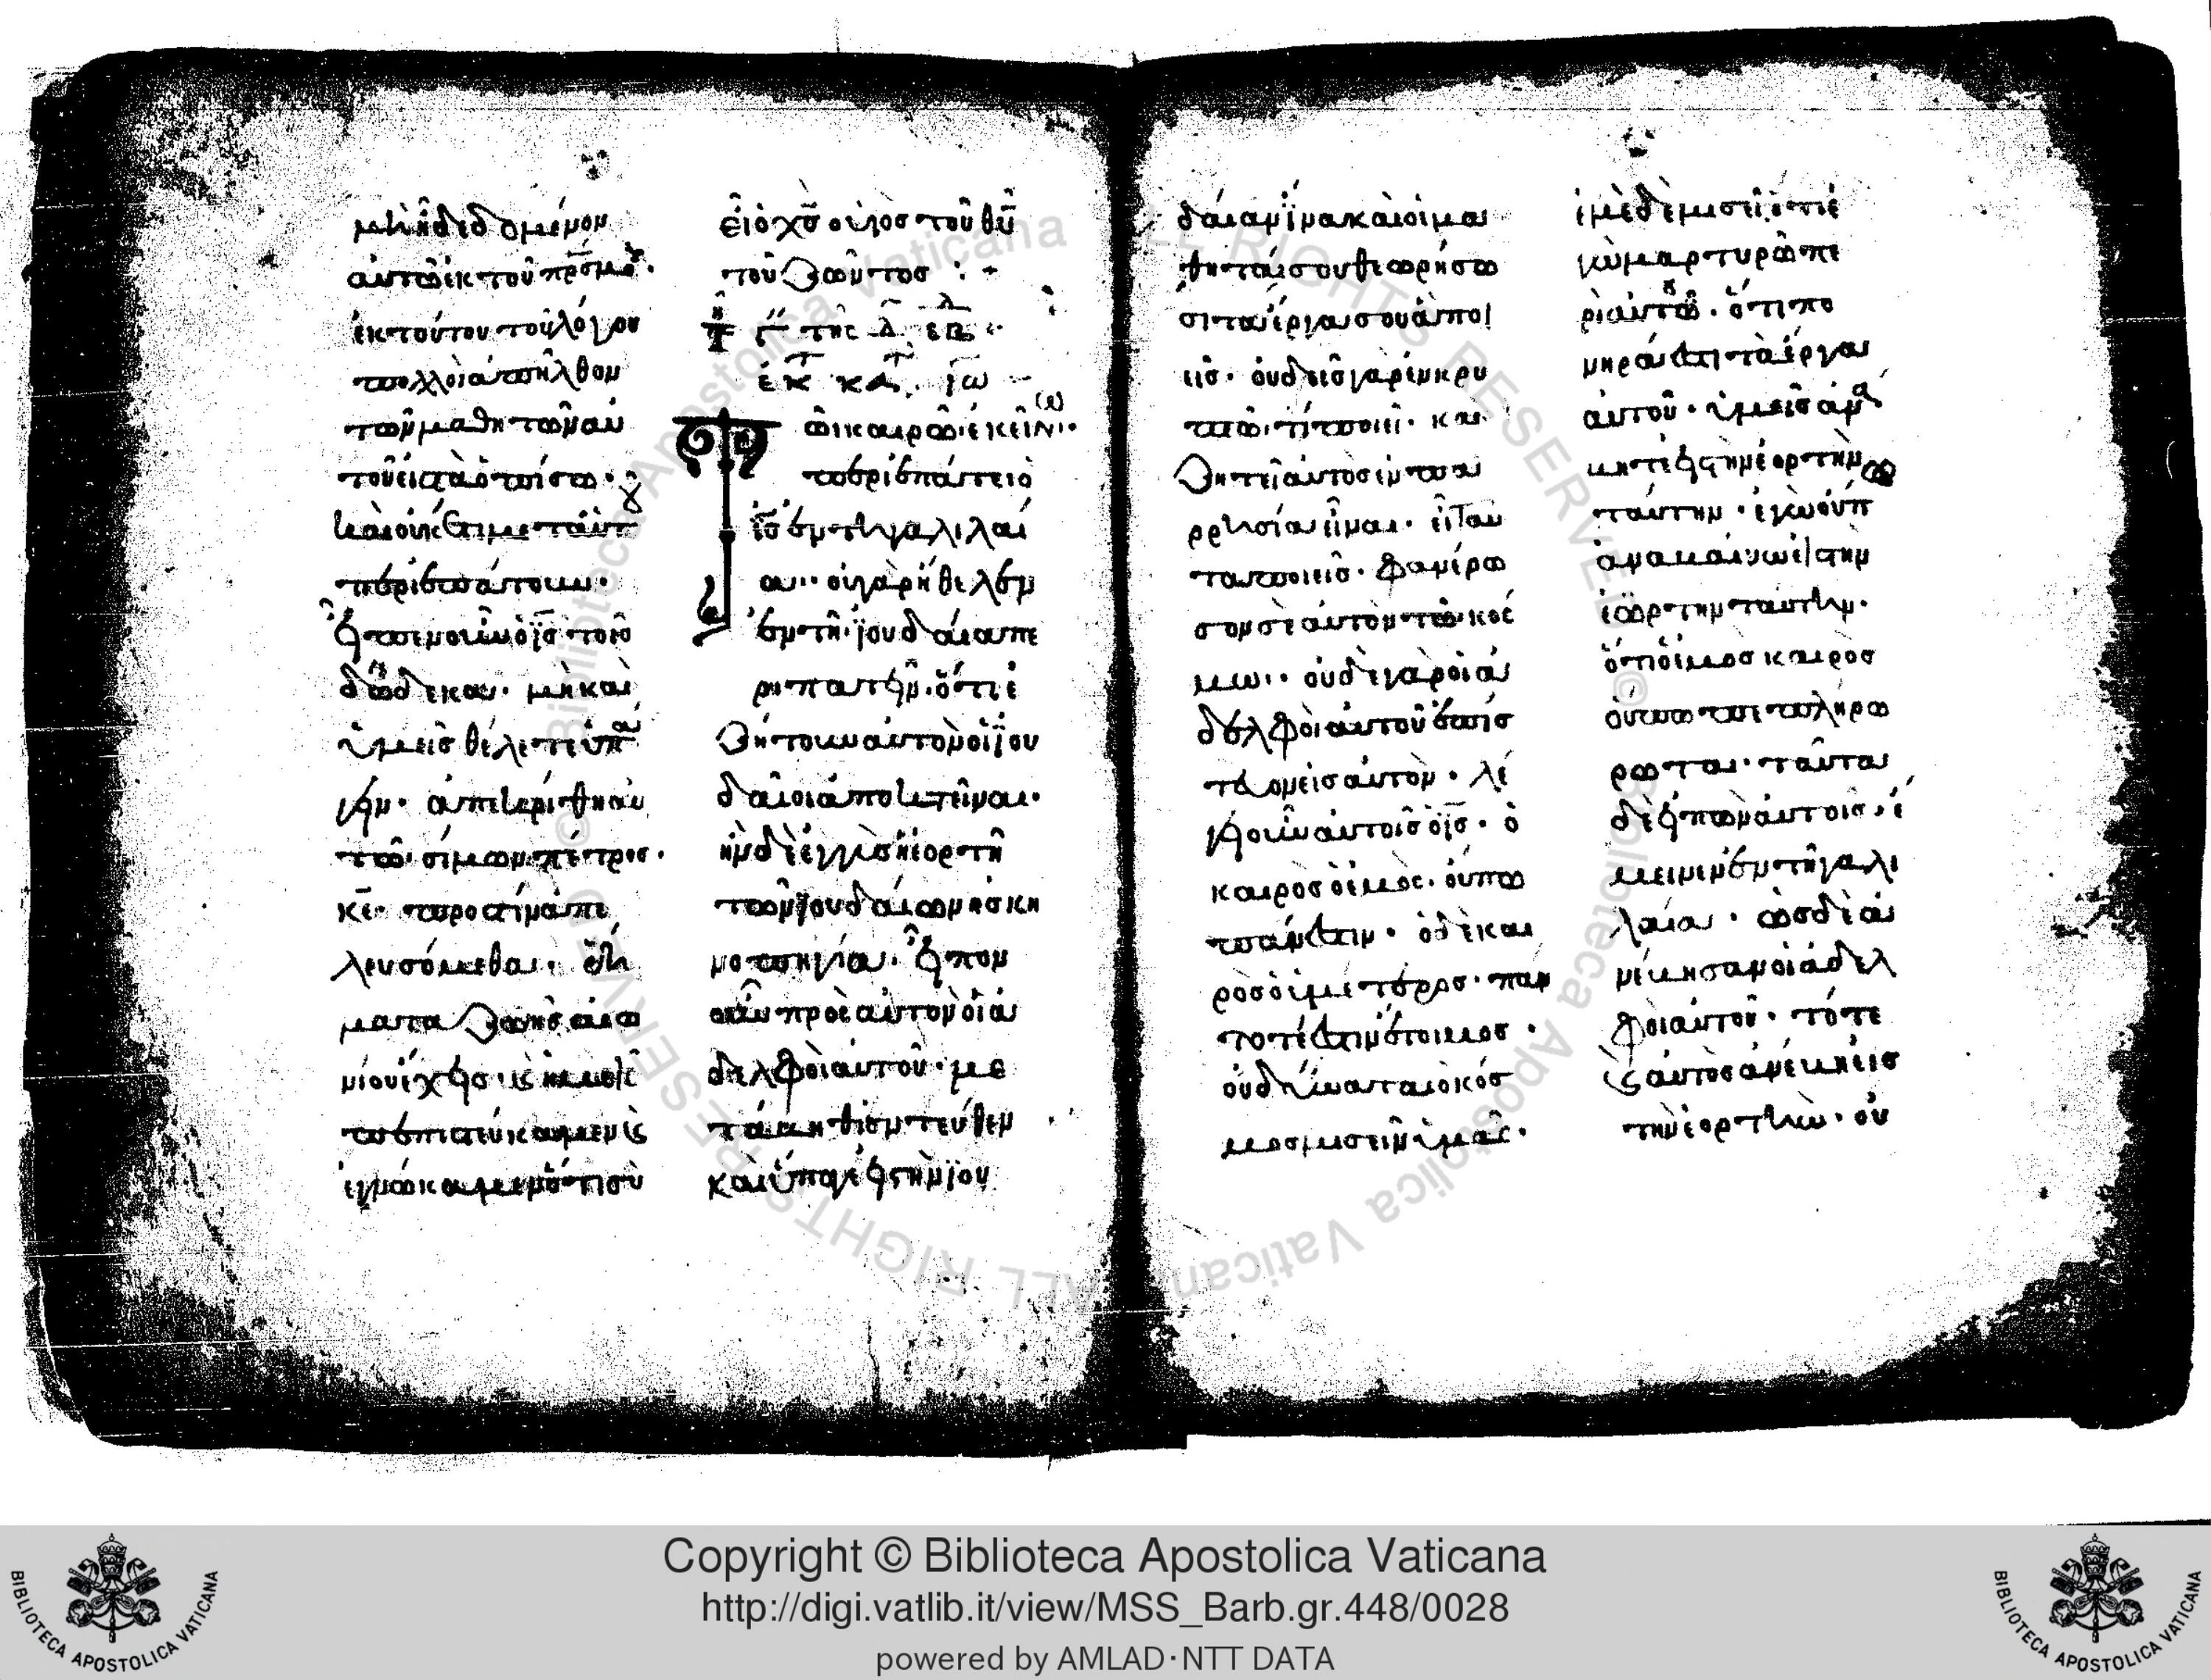 μὴ ἦ δεδομένον
αὐτῶ ἐκ του πρσ μου.
ἐκ τούτου τοῦ λόγου
πολλοὶ ἀπῆλθον
τῶν μαθητῶν αὐ
τοῦ εἰς τὰ ὀπίσω·
καὶ οὐκ ἔτι μετ αὐτ
περιεπάτουν·
εἶπεν οὖν ὁ ις τοῖς
δώδεκα· μὴ καὶ
ὑμεῖς θέλετε ὑπά
γειν· ἀπεκρίθη αὐ
τῶ σίμων πέτρος·
κε· προς τίνα ἀπε
λευσόμεθα· ῥή
ματα ζωῆς αἰω
νίου ἔχεις· καὶ ἡμεῖς
πεπιστεύκαμεν καὶ
ἐγνώκαμεν ὅτι σὺ
εἶ ὁ χς ὁ υἱὸς τοῦ θυ
τοῦ ζῶντος :
τῆς
ἐκ κατ ιω
Τῶ καιρῶ ἐκείνω·
περιεπάτει ὁ
ις ἐν τῆ γαλιλαί
α·· οὐ γὰρ ἤθελεν
ἐν τῆ ϊουδαία πε
ριπατεῖν· ὅτι ἐ
ζήτουν αὐτὸν οἱ ϊου
δαῖοι ἀποκτεῖναι·
ἦν δὲ ἐγγὺς ἡ ἑορτὴ
τῶν ϊουδαίων ἡ σκη
νοπηγία· εἶπον
οὖν προς αὐτὸν οἱ ἀ
δελφοὶ αὐτοῦ· με
τάβηθι ἐντεῦθεν
καὶ ὕπαγε εἰς τὴν ϊου
δαίαν ϊνα καὶ οἱ μα
θηταί σου θεωρήσω
σι τὰ ἔργα σου ἃ ποι
εῖς· οὐδεὶς γὰρ ἐν κρυ
πτῶ τί ποιεῖ· καὶ
ζητεῖ αὐτὸς ἐν πα
ρρησία εἶναι· εἰ ταῦ
τα ποιεῖς· φανέρω
σον σεαυτὸν τῶ κόσ
μω·· οὐδὲ γὰρ οἱ ἀ
δελφοὶ αὐτοῦ ἐπίσ
τευον εἰς αὐτόν· λέ
γει οὖν αὐτοῖς ὁ ις· ὁ
καιρὸς ὁ ἐμὸς· οὔπω
πάρεστιν· ὁ δὲ και
ρὸς ὁ ὑμέτερος· πάν
τοτέ ἐστιν ἕτοιμος·
οὐ δύναται ὁ κόσ
μος μισεῖν ὑμᾶς·
ἐμὲ δὲ μισεῖ, ὅτι ἐ
γὼ μαρτυρῶ πε
ρὶ αὐτοῦ· ὅτι πο
νηρά ἐστι τὰ ἔργα
αὐτοῦ· ὑμεῖς ἀνά
βητε εἰς τὴν ἑορτὴν
ταύτην· ἐγὼ οὔπ
ἀναβαίνω εἰς τὴν
ἑορτὴν ταύτην·
ὅτι ὁ ἐμὸς καιρὸς
οὔπω πεπλήρω
ρωται· ταῦτα
δὲ εἰπὼν αὐτοῖς, ἔ
μεινεν ἐν τῆ γαλι
λαία· ὡς δὲ ἀ
νέβησαν οἱ ἀδελ
φοὶ αὐτοῦ· τότε
καὶ αὐτὸς ἀνέβη εἰς
τὴν ἑορτὴν· οὐ
Copyright © Biblioteca Apostolica Vaticana
http://digi.vatlib.it/view/MSS_Barb.gr.448/0028
powered by AMLAD·NTT DATA
BIBLIOTECA APOSTOLICA VATICANA
BIBLIOTECA APOSTOLICA VATICANA